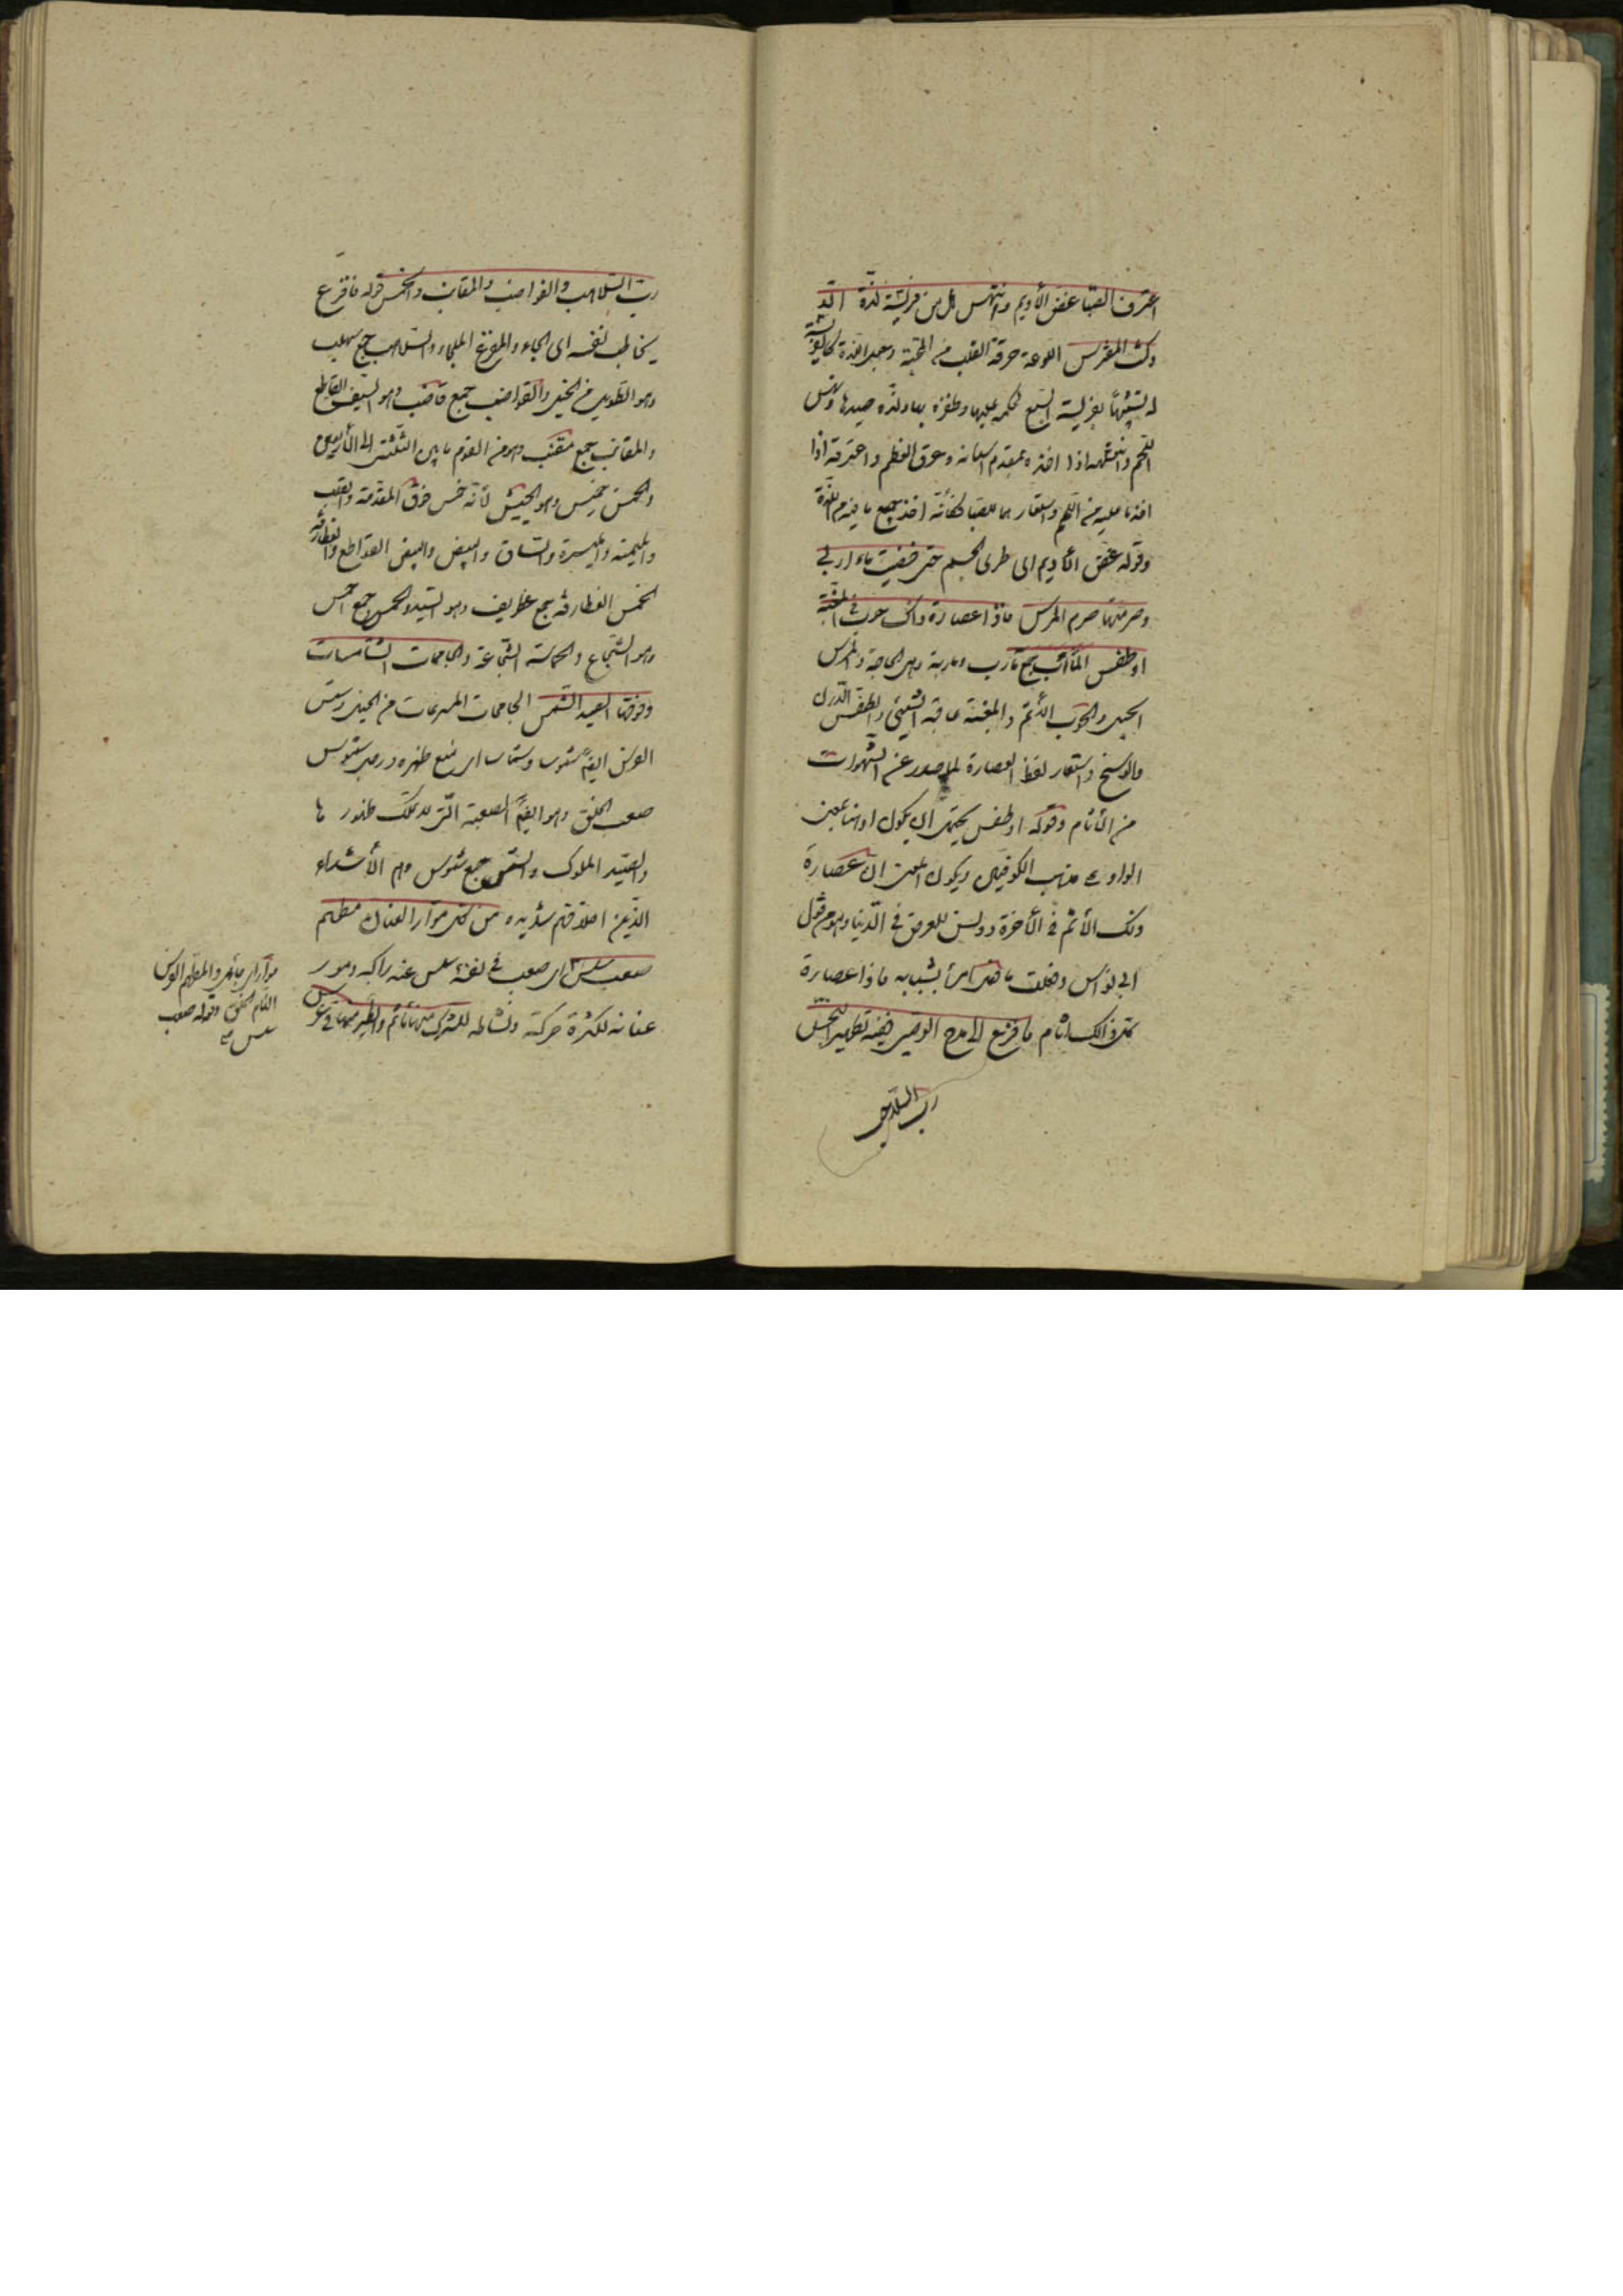 اعترف الصبا غض الأديم وانتهس بل من فريسة لذة
وكت المفترس اللوعة حرقة القلب من المحبة وجعل اللذة كالفريسة
له تشبيها بفريسة السبع لحكمه عليها وظفره بها ولذة صيدها ونهس
اللحم وانتهسه اذا اخذه بمقدم اسنانه وعرق العظم واعترقه اذا
اخذ ما عليه من اللحم واستعارهما للصبا فكأنه اخذ جميع ما فيه من اللذة
وقوله غض الأديم اى طرى الجسم حتى قضيت مآربى
وصرمتها صرم المرس فاذا عصارة ذاك حوب فى المغبة
او طفس المآرب جمع مأرب ومأربة وهى الحاجة والمرس
الحبل والحوب الأثم والمغبة عاقبة الشيئ والطفس الدرن
والوسخ واستعار لفظ العصارة لما صدر عن الشهوات
من الأثام وقوله او طفس يحتمل ان يكون او هنا بمعنى
الواو على مذهب الكوفيين ويكون المعنى ان عصارة
ذلك الأثم فى الأخرة ودنس للعرض فى الدنيا وهو من قول
ابى نواس وفعلت ما فعل امرأ بشبابه فاذا عصارة
كل ذالك اثام فافزع الى مدح الوصى ففيه تطهير النجس
رب السلاهب
رب السلاهب والقواضب والمقانب والخمس قوله فافزع
يخاطب نفسه اى الجاء والمفزع الملجاء والسلاهب جمع سلهب
وهو الطويل من الخيل والقواضب جمع قاضب وهو السيف القاطع
والمقانب جمع مقنب وهو من القوم ما بين الثلثين الى الأربعين
والخمس خميس وهو الجيش لأنه خمس فرق المقدمة والقلب
والميمنة والميسرة والساق والبيض والبيض القواطع والغطارفة
الحمس الغطارفة جمع غطريف وهو السيد والحمس جمع احمس
وهو الشجاع والحماسة الشجاعة والجامحات الشامسات
وفوقها الصيد الشمس الجامحات المسرعات من الخيل وشمس
الفرس ايضا شموسا وشماسا اى منع ظهره ورجل شموس
صعب الخلق وهو ايضا الصعبة التى لا تملك ظهورها
والصيد الملوك والشمس جمع شموس وهم الأشداء
الذين اخلاقهم شديده من كل موار العنان مطهم
صعب سلس اى صعب فى نفسه سلس عند راكبه ومور
عنانه لكثرة حركته ونشاطه للشرك منها مأتم والطير منها فى عرس
موار اى جائل والمطهم الفرس
التام الخلق وقوله صعب
سلس